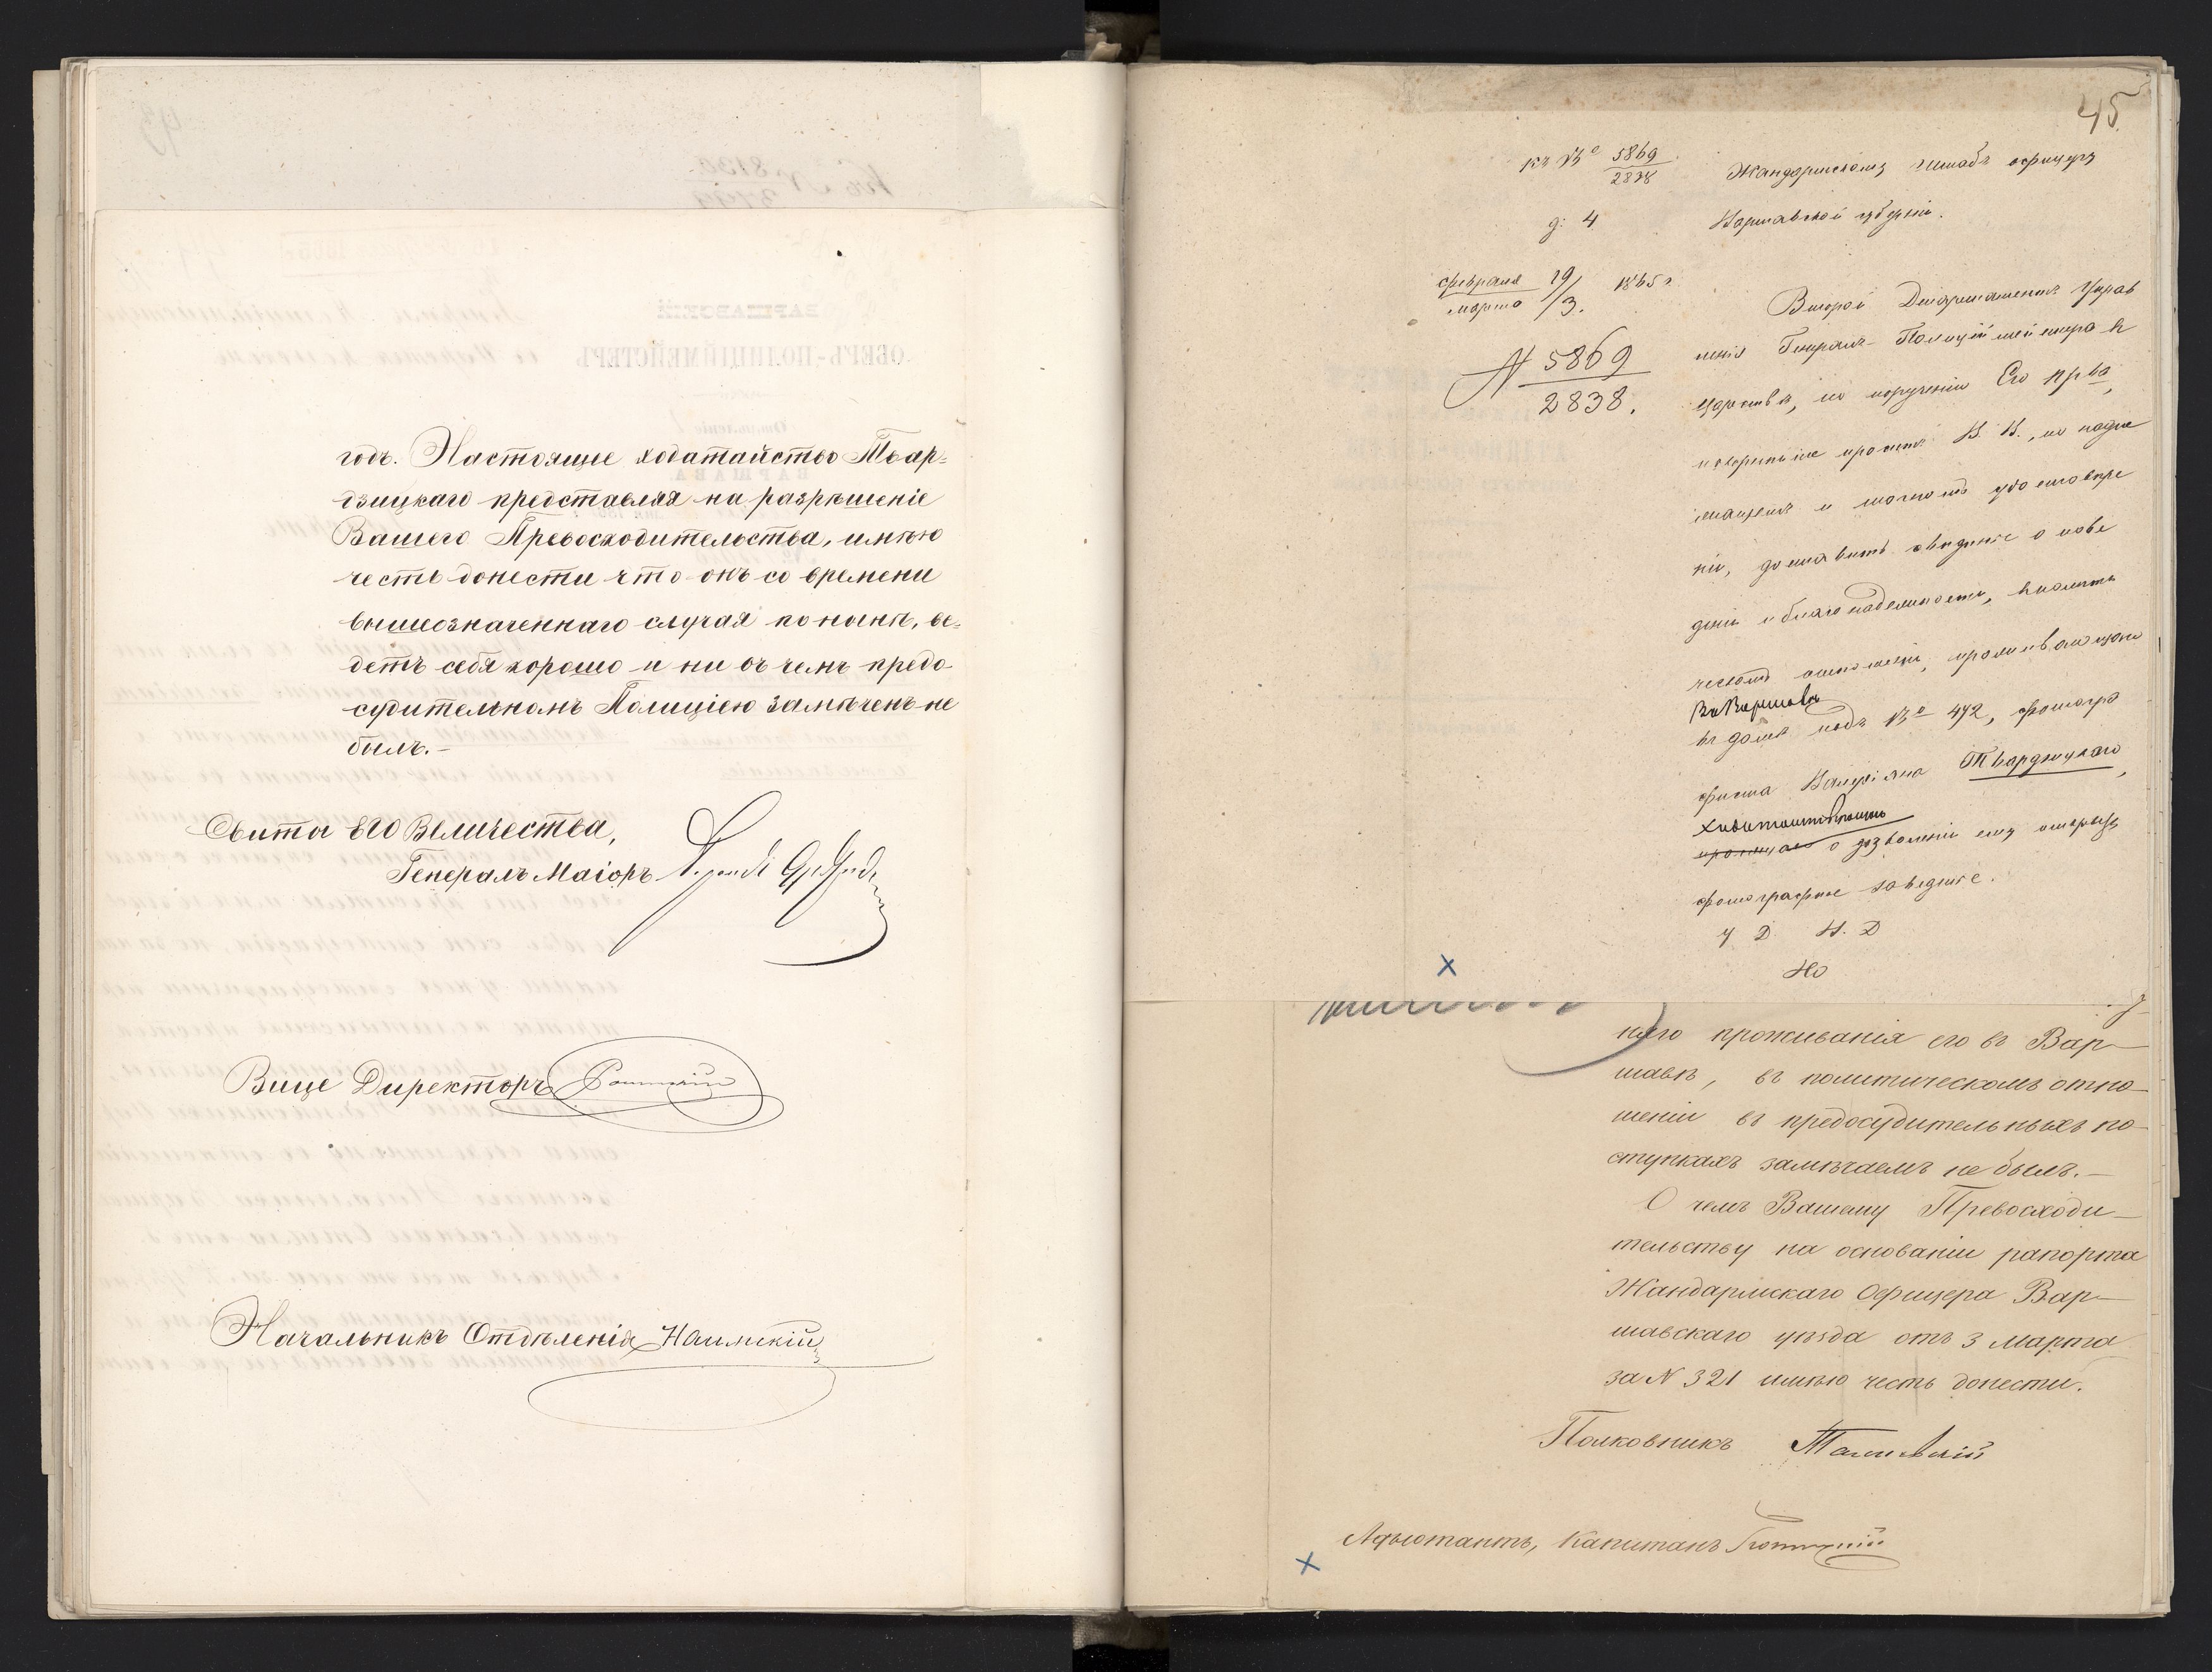 годъ. Настоящее ходатайство Твар=
дзицкаго представляя на разрѣшеніе
Вашего Превосходительства, имѣю
честь донести что онъ со времени
вышеозначеннаго случая по нынѣ, ве=
детъ себя хорошо и ни въ чемъ предо-
судительномъ Полиціею замѣченъ не
былъ.-
Свиты Его Величества,
Генералъ Маіоръ
Вице Директоръ
Начальникъ Отдѣленія
45
къ № 5869
2838
д: 4
Февраля 19/ 1865 г
Марта /3.
N 5869
2838.
Жандармскому Штабъ офицеру
Варшавской губерніи.
Второй Департаментъ Управ
ленія Генералъ-Полицiймейстера в
Царствѣ, по порученію Его Пр-ва,
проситъ В. В., по
и удостовѣре
ніи, доставить свѣденіе о пове
деніи и благонадежности, в полити
ческомъ отношеніи, проживающаго
въ Варшавѣ
въ домѣ подъ № 472, фотогра
фиста Валеріяна Твардзицкаго,
ходатайствующаго
о дозволеніи ему открыть
фотографное заведеніе.
У Д Н. Д
НО
наго проживанія его въ Вар-
шавѣ, въ политическомъ отно-
шеніи въ предосудительныхъ по-
ступкахъ замѣчаемъ не былъ.-
О чемъ Вашему Превосходи-
тельству на основаніи рапорта
Жандармскаго Офицера Вар-
шавскаго уѣзда отъ 3 Марта
за N 321 имѣю честь донести.
Полковникъ
Адъютантъ, Капитанъ